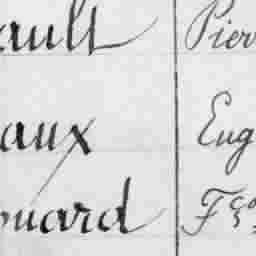 ault Pier
aux Eug
ouard Fço